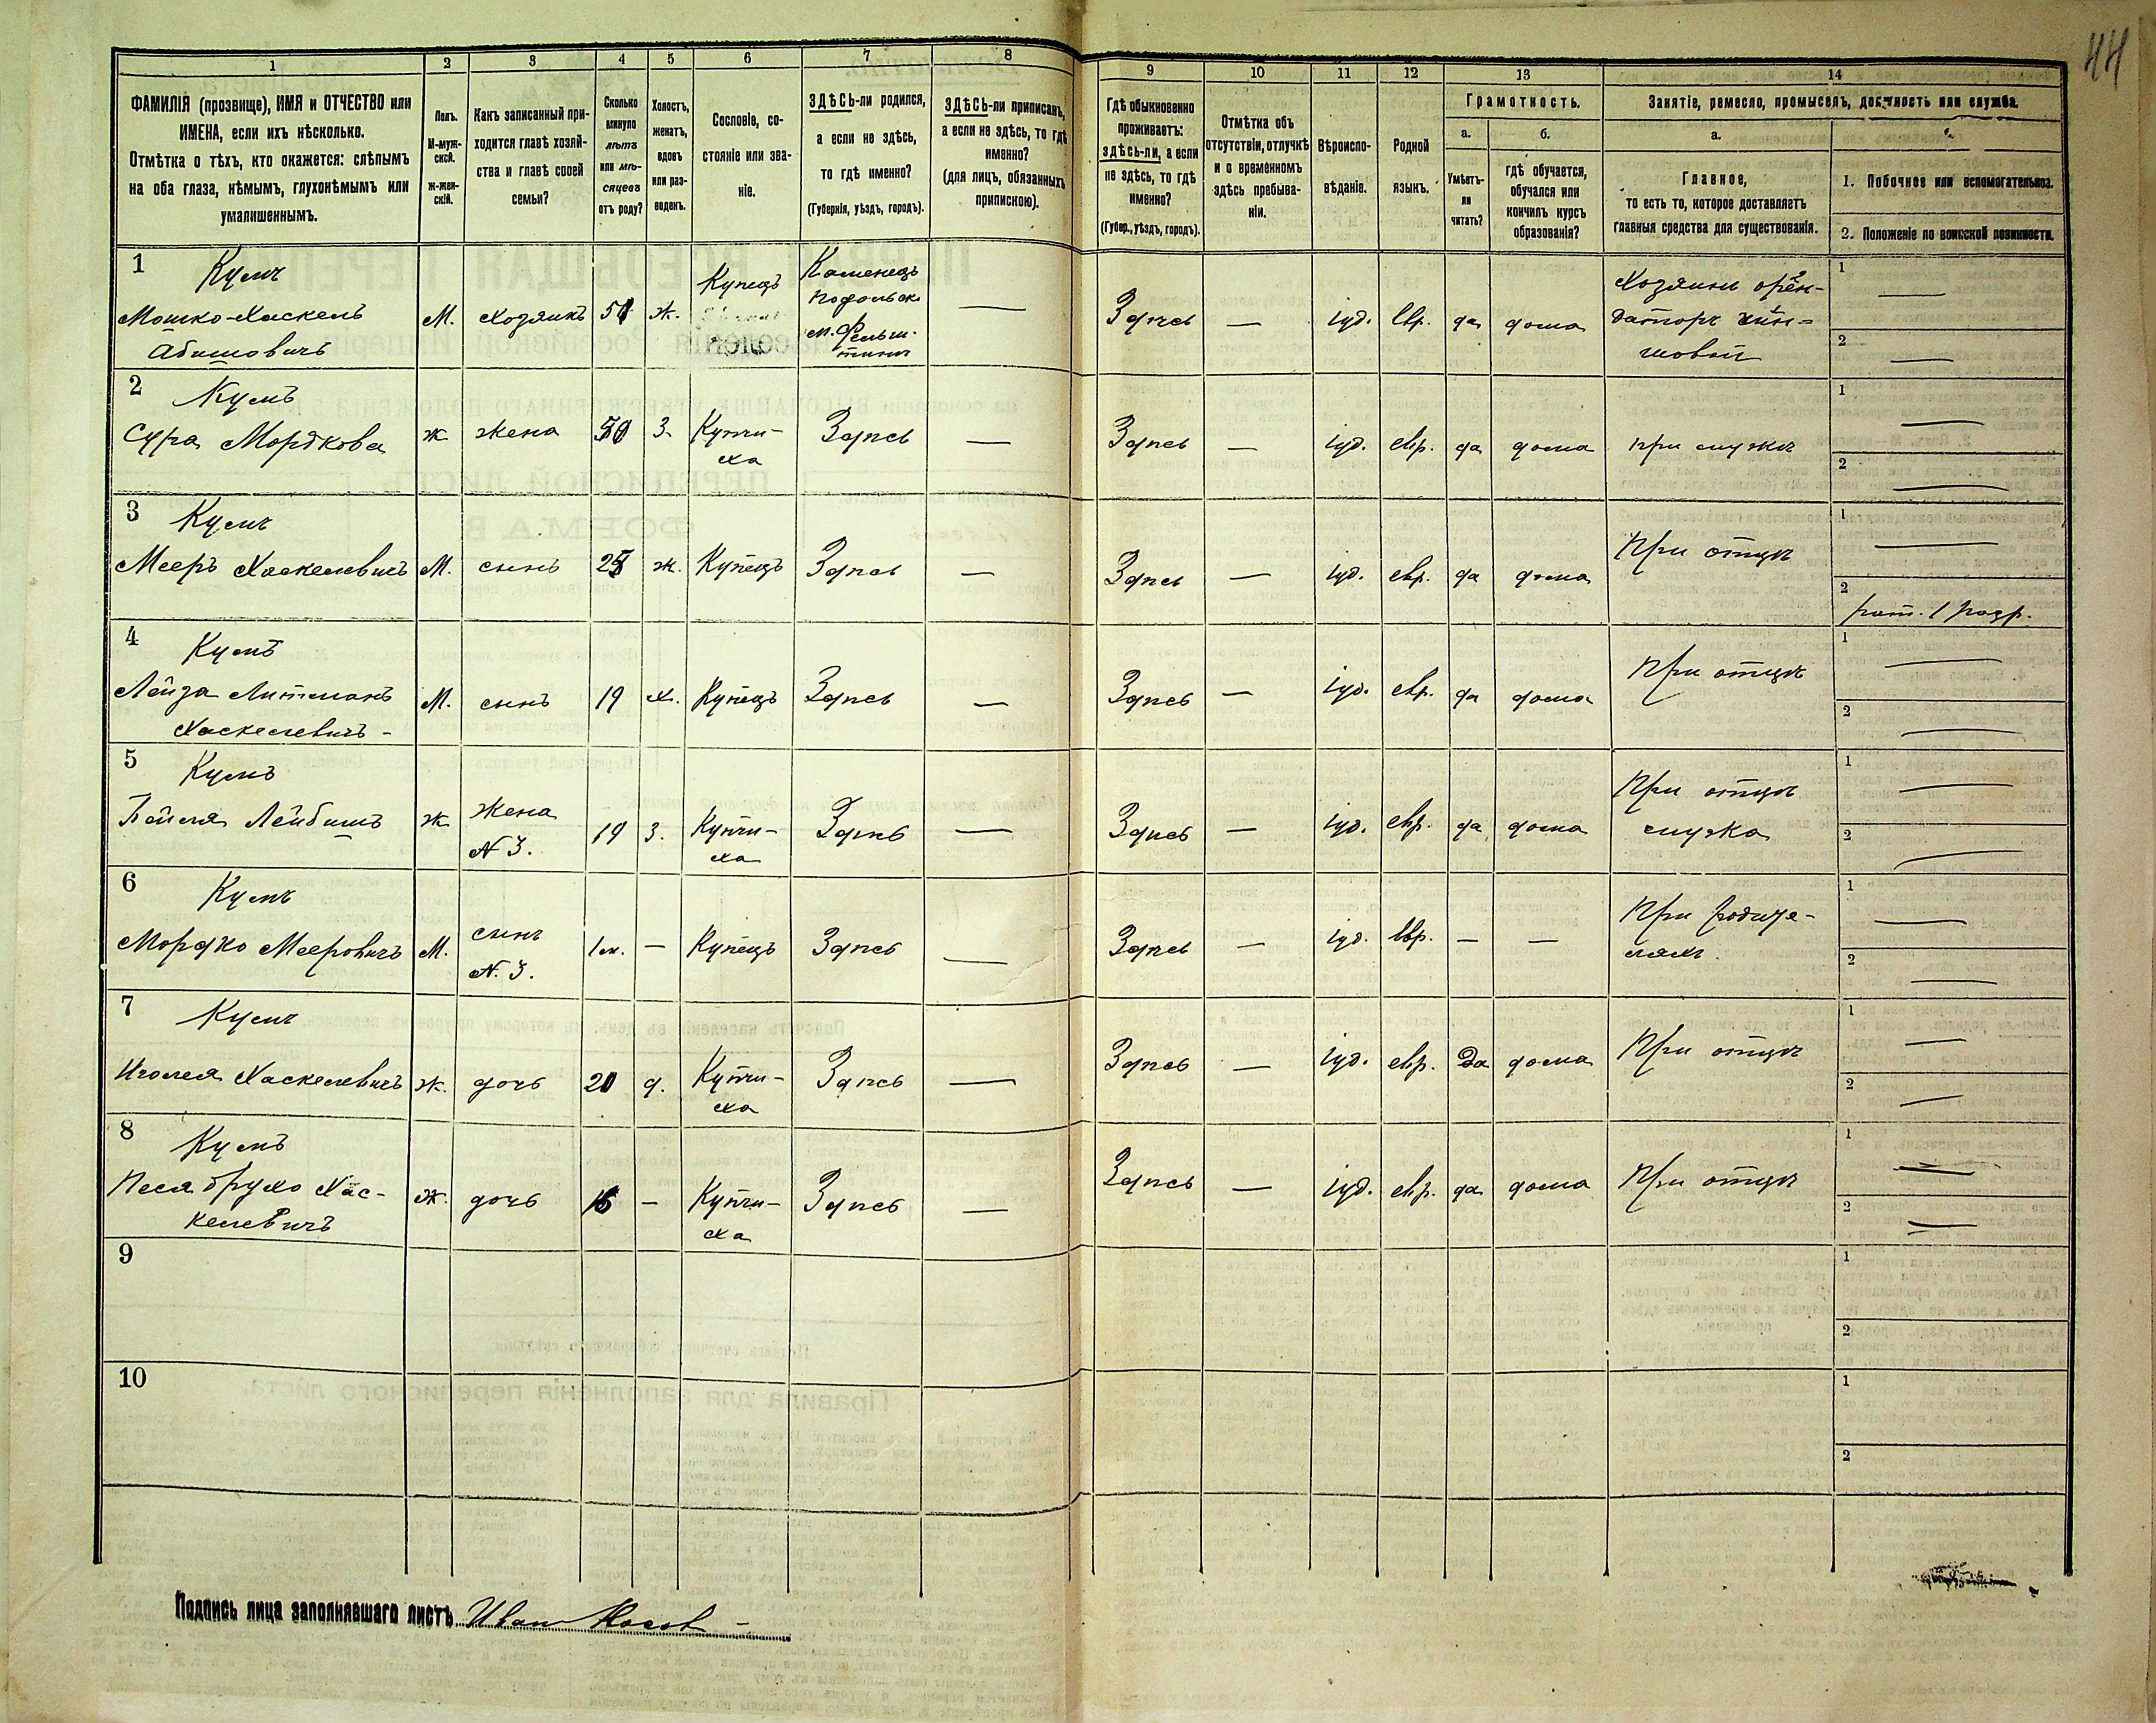 44
1 2 3 4 5 6 7 8 9 10 11 12 13 14
ФАМИЛІЯ (прозвище), ИМЯ и ОТЧЕСТВО или
ИМЕНА, если ихъ нѣсколько.
Отмѣтка о тѣхъ, кто окажется: слѣпымъ
на оба глаза, нѣмымъ, глухонѣмымъ или
умалишеннымъ.
Полъ.
М-муж-
ской.
ж-жен-
скій.
Какъ записанный при-
ходится главѣ хозяй-
ства и главѣ своей
семьи?
Сколько
минуло
лѣтъ
или мѣ-
сяцевъ
отъ роду?
Холостъ,
женатъ,
вдовъ
или раз-
веденъ.
Сословіе, со-
стояніе или зва-
ніе.
ЗДѢСЬ-ли родился,
а если не здѣсь,
то гдѣ именно?
(Губернія, уѣздъ, городъ).
ЗДѢСЬ-ли приписанъ,
а если не здѣсь, то гдѣ
именно?
(для лицъ, обязанныхъ
припискою).
Гдѣ обыкновенно
проживаетъ:
здѣсь-ли, а если
не здѣсь, то гдѣ
именно?
(Губер., уѣздъ, городъ).
Отмѣтка объ
отсутствіи, отлучкѣ
и о временномъ
здѣсь пребыва-
ніи.
Вѣроиспо-
вѣданіе.
Родной
языкъ.
Грамотность.
а.
Умѣетъ-
ли
читать?
б.
гдѣ обучается,
обучался или
кончилъ курсъ
образованія?
Занятіе, ремесло, промыселъ, должность или служба.
а.
Главное,
то есть то, которое доставляетъ
главныя средства для существованія.
1. Побочное или вспомогательное.
2. Положеніе по воинской повинности.
1
Мошко-Хаскель
Абишовичъ
М. Хозяинъ 51 ж. Купецъ
Каменецъ
Подольск.
— Здѣсь — іуд. евр. да дома
Хозяинъ
1 —
2 —
2
Сура Мордкова ж жена 50 З. Купчи-
ха
Здѣсь — Здѣсь — іуд. евр. да дома при мужѣ
1 —
2 —
3
Мееръ Хаскелевичъ М. сынъ ж. Купецъ Здѣсь — Здѣсь — іуд. евр. да дома При отцѣ
1 —
2 рат. 1 разр.
4
Лейза Литманъ
Хаскелевичъ
М. сынъ 19 х. Купецъ Здѣсь — Здѣсь — іуд. евр. да дома При отцѣ
1 —
2 —
5
Бейля ж жена
N 3.
19 З. Купчи-
ха
Здѣсь — Здѣсь — іуд. евр. да дома При отцѣ
мужа
1 —
2 —
6
Мордко Мееровичъ М. сынъ
N. 3.
1м. — Купецъ Здѣсь — Здѣсь — іуд. евр. — — При родите-
ляхъ.
1 —
2 —
7
Хаскелевичъ ж. дочь 20 д. Купчи-
ха
Здѣсь — Здѣсь — іуд. евр. да дома При отцѣ
1 —
2 —
8
Песя Брухо Хас-
келевичъ
ж. дочь — Купчи-
ха
Здѣсь — Здѣсь — іуд. евр. да дома При отцѣ
1 —
2 —
9
1
2
10
1
2
Подпись лица заполнявшаго листъ Иван